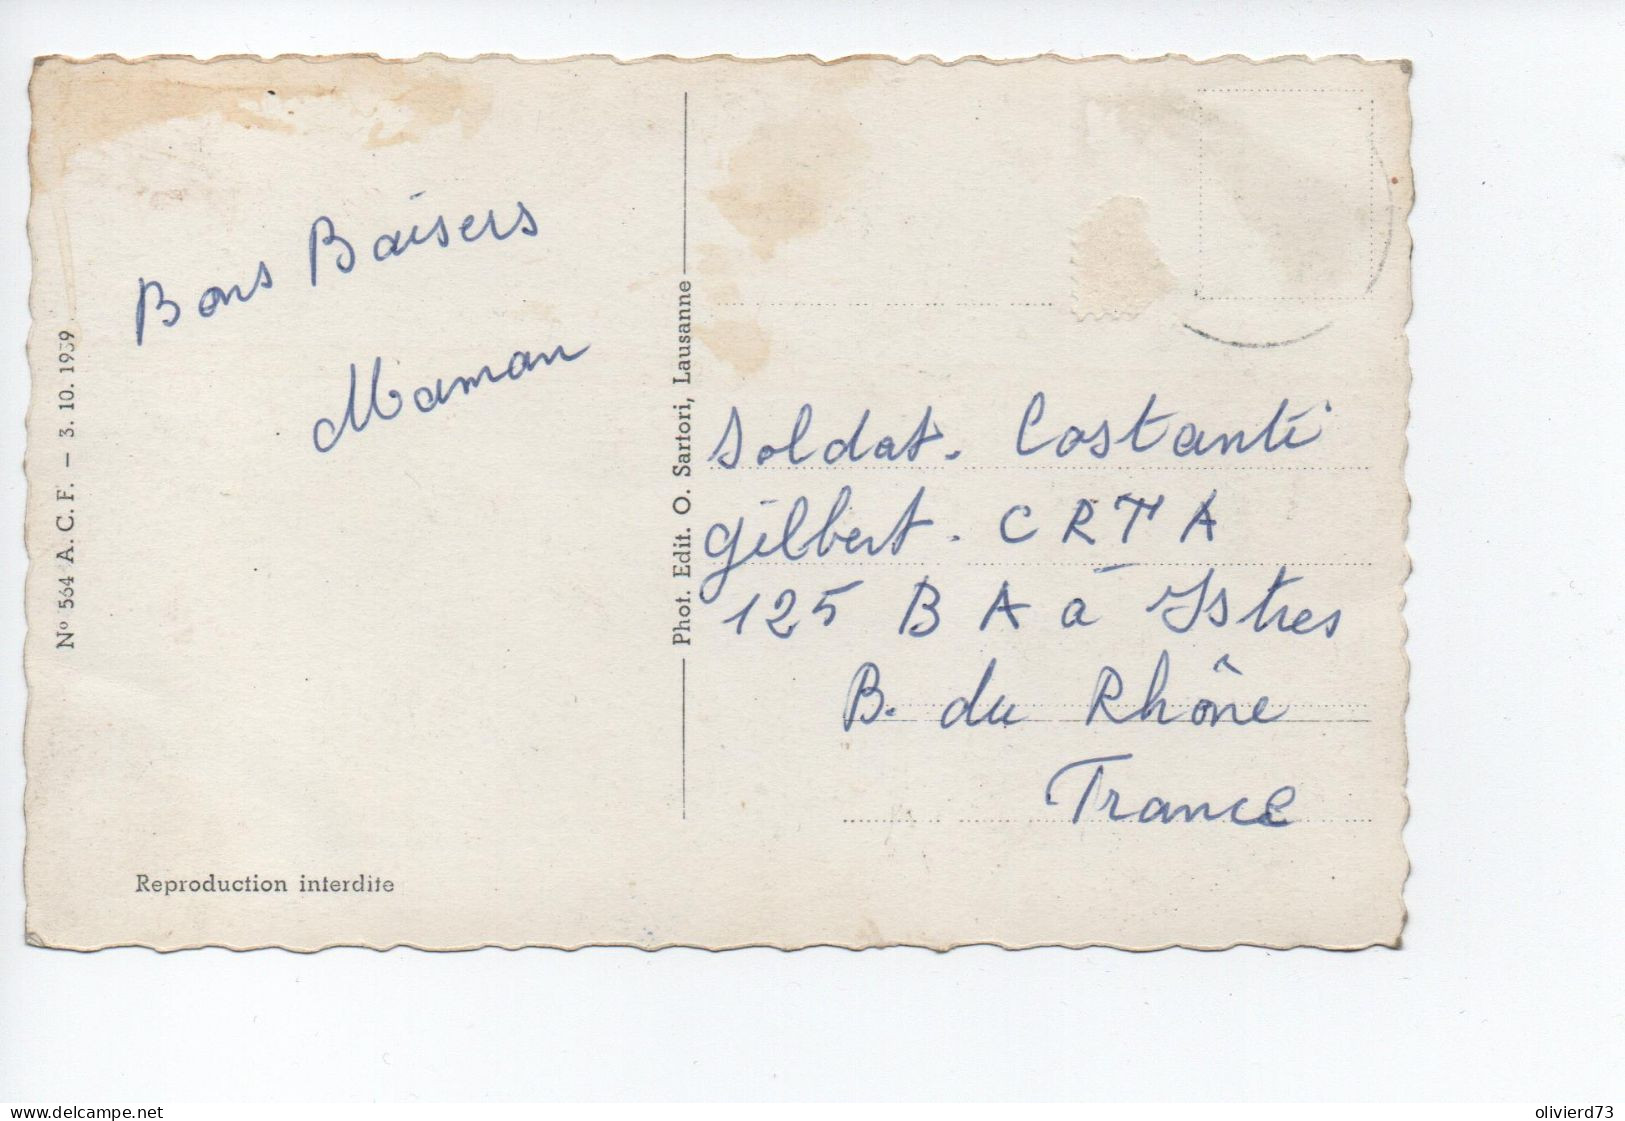 Bons Baisers
Maman
N° 564 A. C. F. – 3. 10. 1939
Reproduction interdite
Phot. Edit. O. Sartori, Lausanne
Soldat. Costanti
Gilbert. CRTA
125 B A à Istres
B. du Rhône
France
delcampe.net
olivierd73